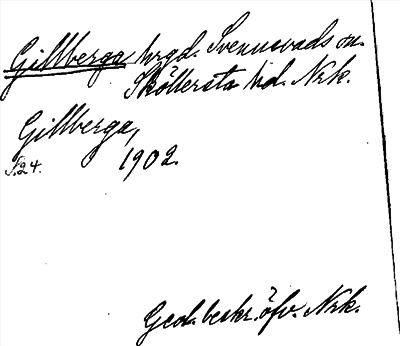 Gillberga hrgd. Svennevads sn.
Sköllersta hd. Nrk.
Gillberga,
S. 24. 1902.
Geod. beskr. öfv. Nrk.